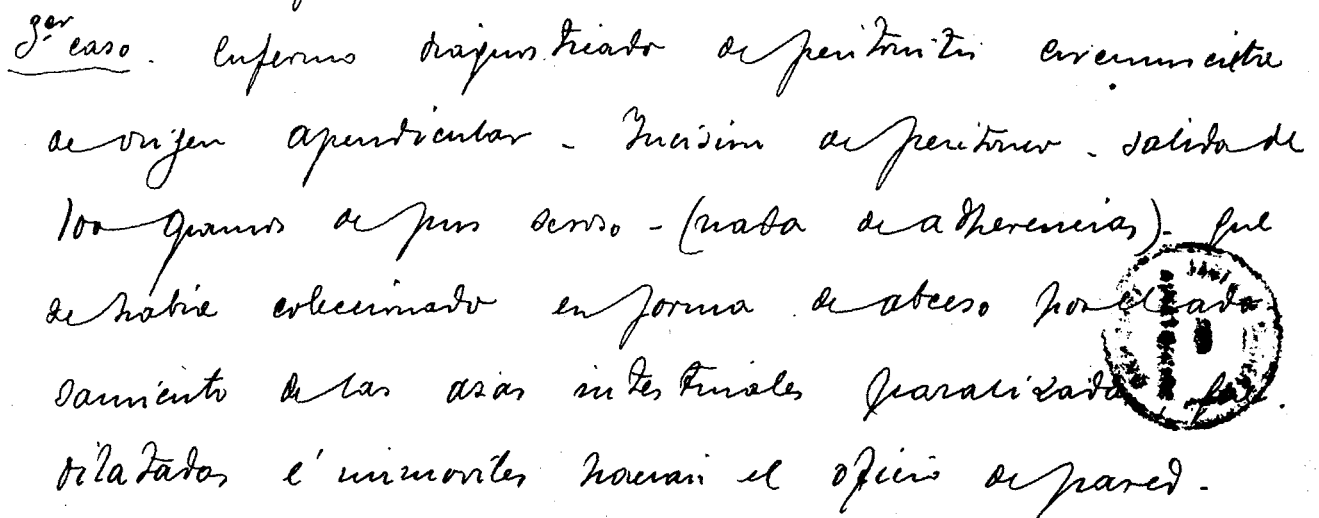 3er caso. Enfermo diagnosticado de peritonitis circunscitra
de origen apendicular - Incisión de peritoneo - salida de
100 gramos de pus seroso - (nada de adherencias) - que
se había coleccionado en forma de abceso por el ado
samiento de las asas intestinales paralizadas, que
dilatadas é inmoviles hacian el oficio de pared.